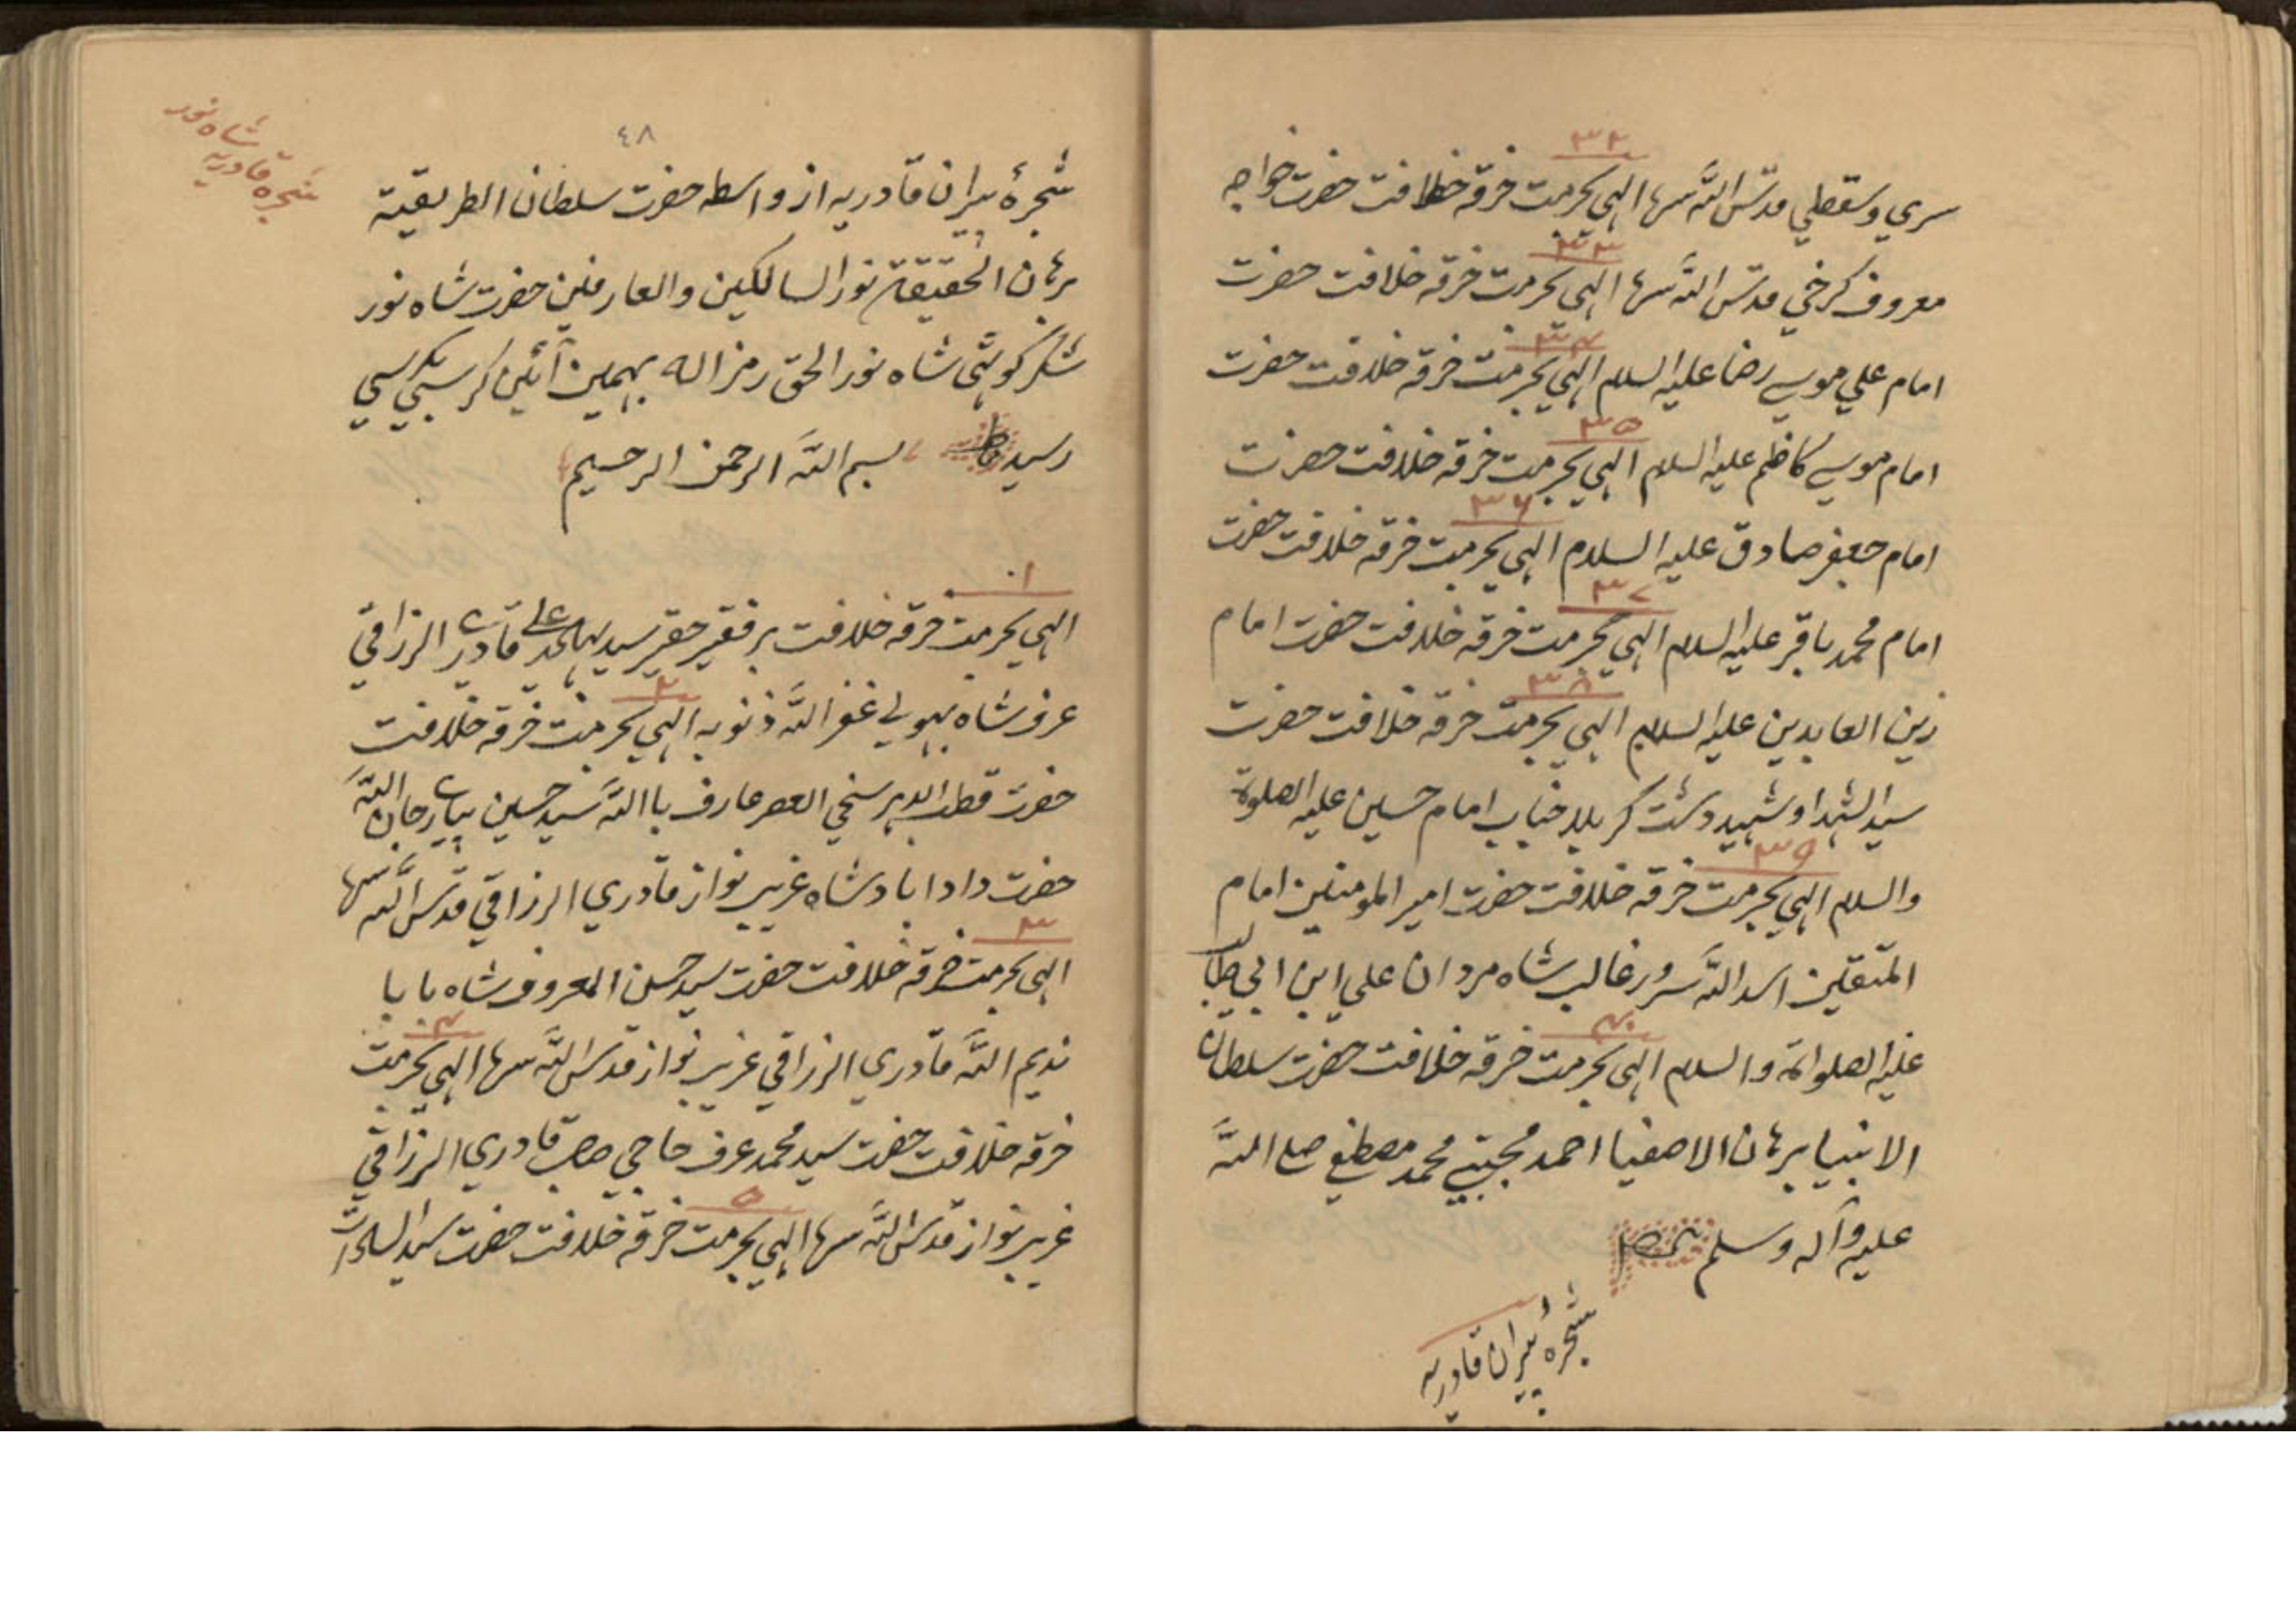 ۳۲
سري وسقطي قدس الله سرها الهي بحرمت خرقه خلافت حضرت خواجه
۳۳
معروف كرخي قدس الله سرها الهي بحرمت خرقه خلافت حضرت
۳۴
امام علي موسي رضا عليه السلام الهي بحرمت خرقه خلافت حضرت
۳۵
امام موسي كاظم عليه السلام الهي بحرمت خرقه خلافت حضرت
۳۶
امام جعفر صادق عليه السلام الهي بحرمت خرقه خلافت حضرت
۳۷
امام محمد باقر عليه السلام الهي بحرمت خرقه خلافت حضرت امام
۳۸
زين العابدين عليه السلام الهي بحرمت خرقه خلافت حضرت
سيد الشهدا و شهيد دشت كربلا جناب امام حسين عليه الصلوة
۳۹
والسلام الهي بحرمت خرقه خلافت حضرت امير المومنين امام
المتقين اسد الله سرور غالب شاه مردان علي ابن ابي طالب
۴۰
عليه الصلواة والسلام الهي بحرمت خرقه خلافت حضرت سلطان
الانبيا برهان الاصفيا احمد مجتبي محمد مصطفي صلے الله
عليه وآله وسلم
شجرهٔ پيران قادريه
شجره قادريه
شاه نور
٤٨
شجرهٔ پيران قادريه از واسطه حضرت سلطان الطريقية
برهان الحقيقة نور السالكين والعارفين حضرت شاه نور
شاه نور الحق رمز اله بهمين آئين كرسي بكرسي
رسيد بسم الله الرحمن الرحيم
۱
الهي بحرمت خرقه خلافت بر فقير حقير سيد علي قادري الرزاقي
۲
عرف شاه غفر الله ذنوبه الهي بحرمت خرقه خلافت
حضرت قطب الدهر سخي العصر عارف باالله سيد حسين پيارجان الله
حضرت دادا باد شاه غريب نواز قادري الرزاقي قدس الله سرها
۳
الهي بحرمت خرقه خلافت حضرت سيد حسن المعروف شاه بابا
۴
نديم الله قادري الرزاقي غريب نواز قدس الله سرها الهي بحرمت
خرقه خلافت حضرت سيد محمد عرف حاجي صاحب قادري الرزاقي
۵
غريب نواز قدس الله سرها الهي بحرمت خرقه خلافت حضرت سيد السادات